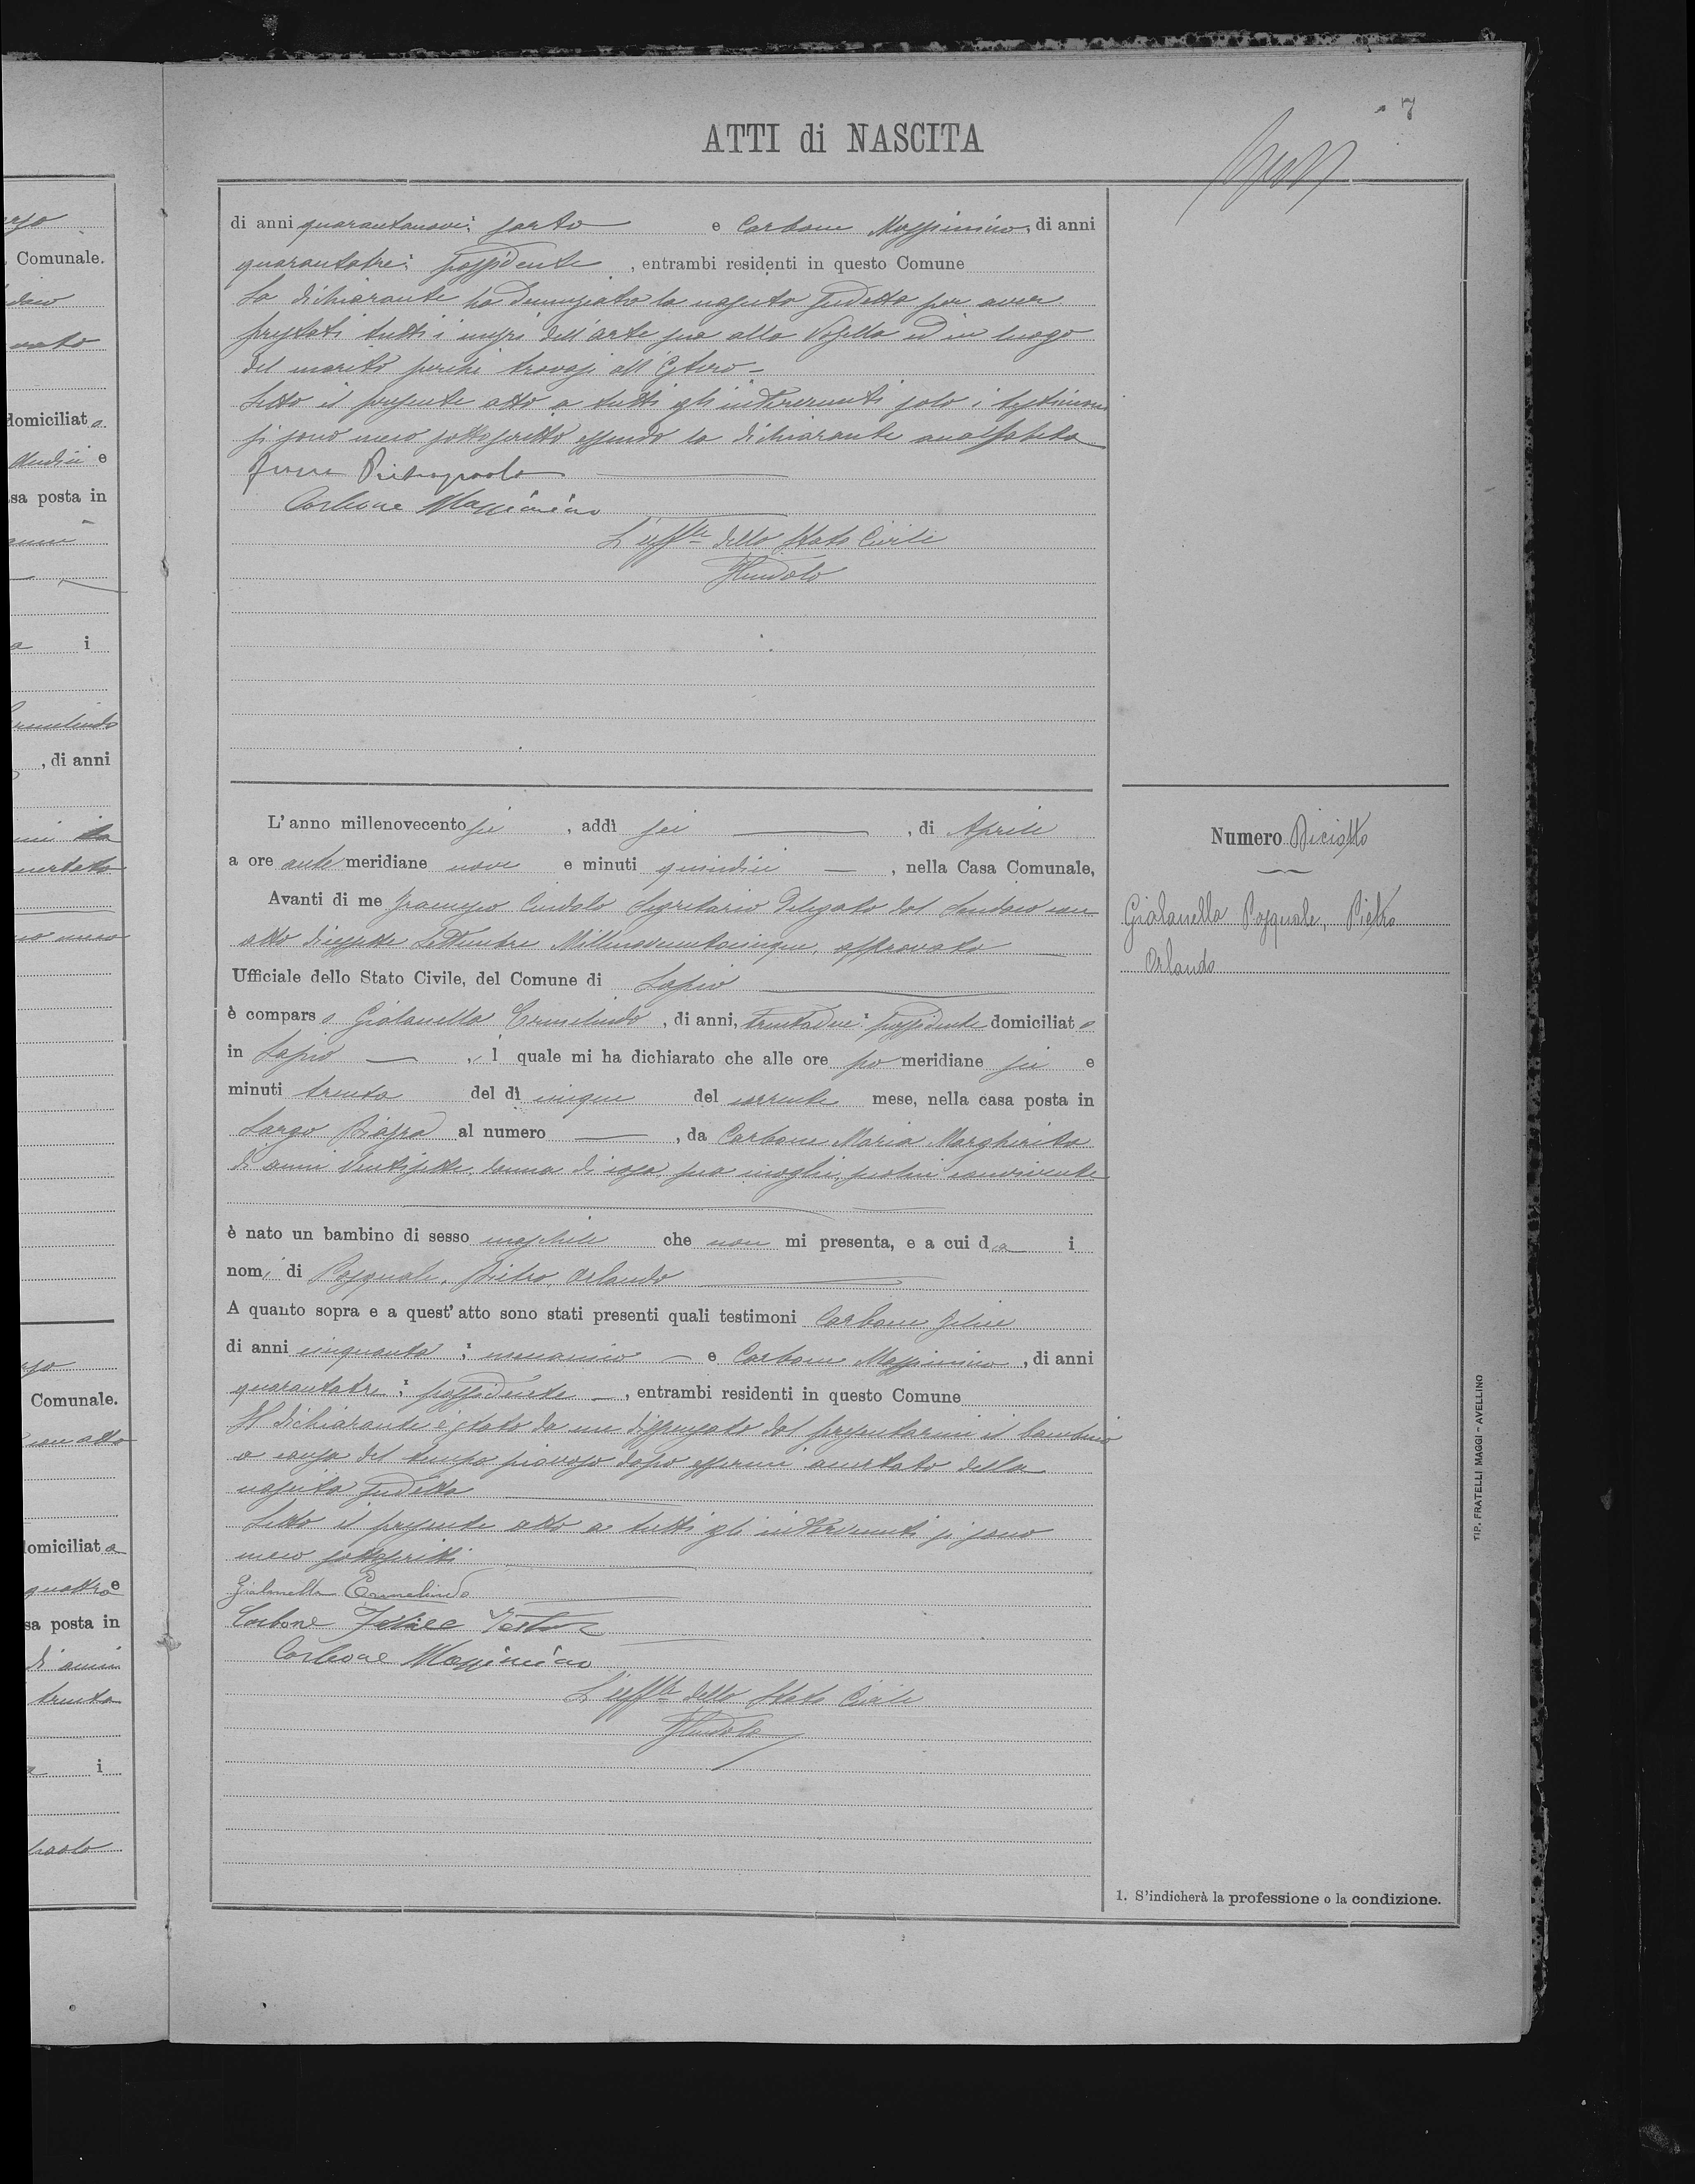 7
ATTI di NASCITA
di anni quarantanove; sarto e Carbone Massimino, di anni
quarantatre; possidente, entrambi residenti in questo Comune
La dichiarante ha denunziato la nascita sudetta per aver
prestati tutti i mezzi dell'arte sua alla Vozella ed in luogo
del marito perchè trovasi all'Estero —
Letto il presente atto a tutti gli intervenuti solo i testimoni
si sono meco sottoscritto essendo la dichiarante analfabeta
Pietropaolo
Carbone Massimino
L'uff.le dello Stato Civile
FCiudolo
L'anno millenovecento sei, addì sei —, di Aprile
a ore antemeridiane nove e minuti quindici —, nella Casa Comunale,
Avanti di me Francesco Ciudolo Segretario Delegato dal Sindaco con
atto diciassette Settembre Millenovecentocinque, approvato —
Ufficiale dello Stato Civile, del Comune di Lapio
è comparso Gialanella Ermelindo, di anni, trentadue; possidente domiciliato
in Lapio —, il quale mi ha dichiarato che alle ore pomeridiane sei e
minuti trenta del dì cinque del corrente mese, nella casa posta in
Largo Piazza al numero —, da Carbone Maria Margherita
di anni Ventisette, donna di casa, sua moglie, seco lui convivente
è nato un bambino di sesso maschile che non mi presenta, e a cui da i
nomi di Pasquale, Pietro, Orlando
A quanto sopra e a quest'atto sono stati presenti quali testimoni Carbone Felice
di anni cinquanta; — e Carbone Massimino, di anni
quarantatre; possidente —, entrambi residenti in questo Comune
Il dichiarante è stato da me dispensato dal presentarmi il bambino
a causa del tempo piovoso dopo essermi accertato della
nascita sudetta
Letto il presente atto a tutti gli intervenuti si sono
meco sottoscritti
Gialanella Ermelindo
Carbone Felice Teste
Carbone Massimino
L'uff.le dello Stato Civile
FCiudolo
Numero Diciotto
Gialanella Pasquale, Pietro
Orlando
1. S'indicherà la professione o la condizione.
TIP. FRATELLI MAGGI - AVELLINO
Comunale.
domiciliata
e
sa posta in
i
, di anni
Comunale.
con atto
domiciliata
quattro e
sa posta in
di anni
trenta
i